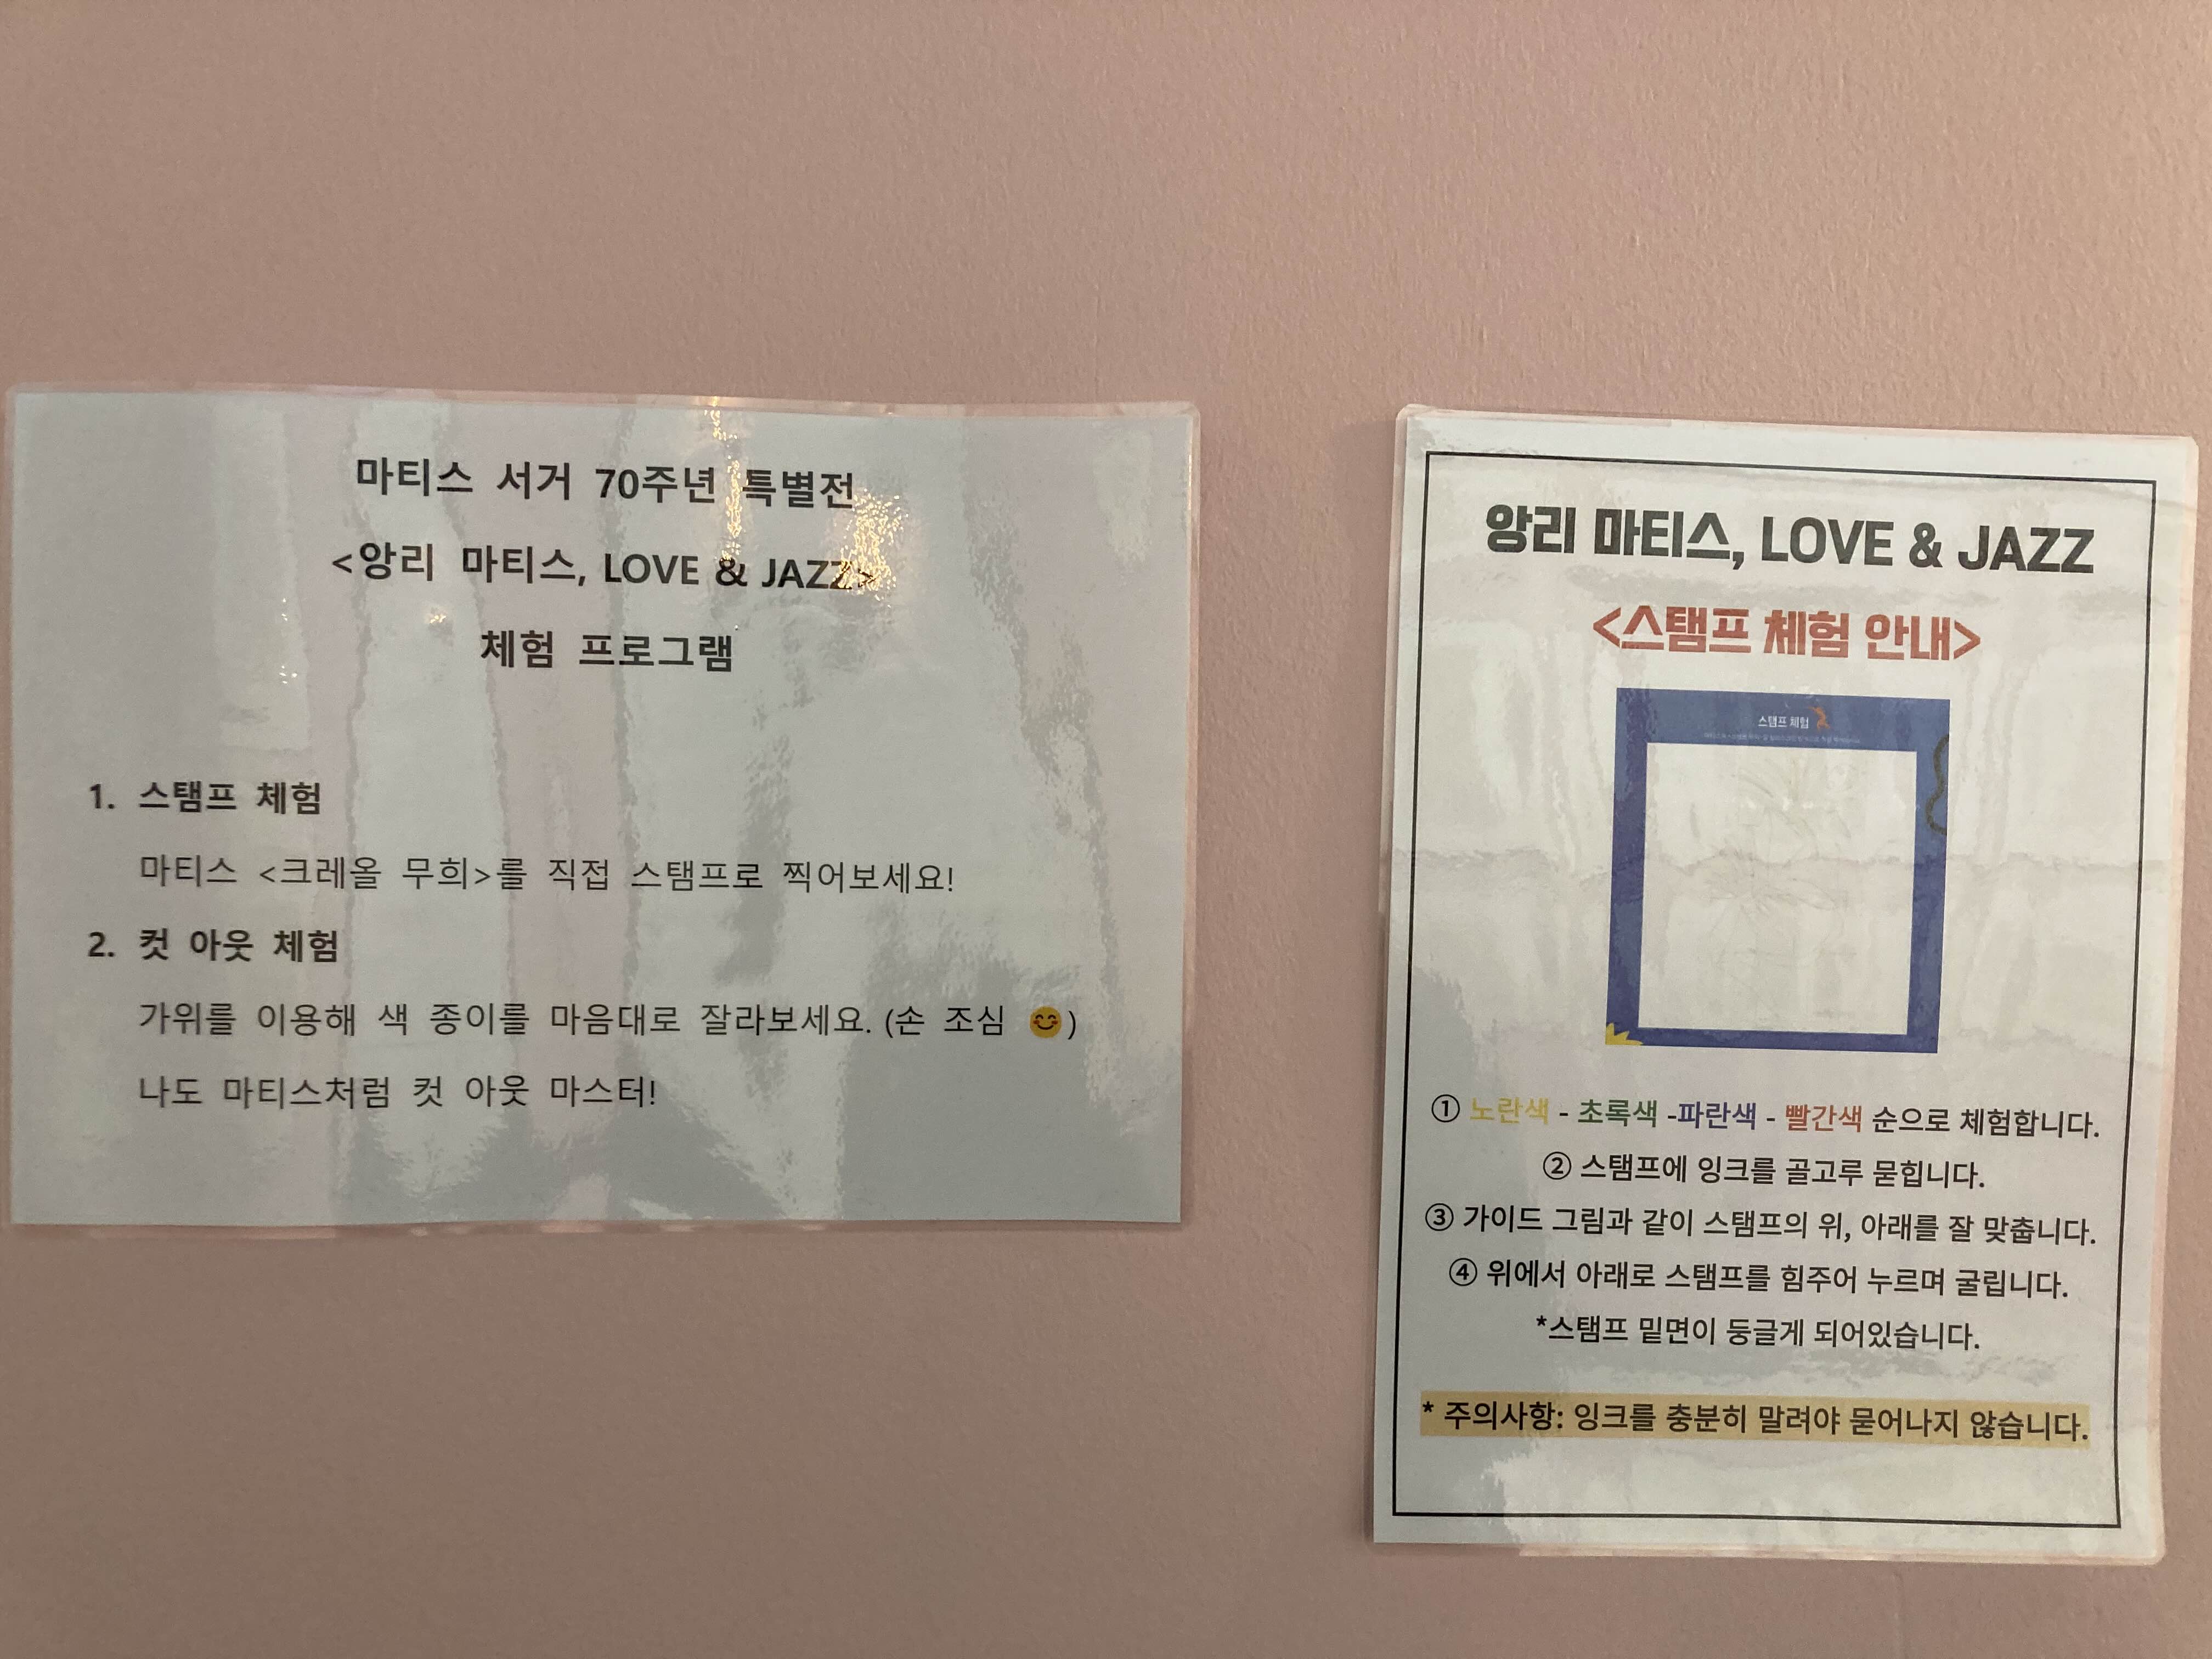 마티스 서거 70주년 특별전
<앙리 마티스, LOVE & JAZZ>
체험 프로그램
1. 스탬프 체험
마티스 <크레올 무희>를 직접 스탬프로 찍어보세요!
2. 컷 아웃 체험
가위를 이용해 색 종이를 마음대로 잘라보세요. (손 조심 😊)
나도 마티스처럼 컷 아웃 마스터!
앙리 마티스, LOVE & JAZZ
<스탬프 체험 안내>
스탬프 체험
① 노란색 - 초록색 -파란색 - 빨간색 순으로 체험합니다.
② 스탬프에 잉크를 골고루 묻힙니다.
③ 가이드 그림과 같이 스탬프의 위, 아래를 잘 맞춥니다.
④ 위에서 아래로 스탬프를 힘주어 누르며 굴립니다.
*스탬프 밑면이 둥글게 되어있습니다.
* 주의사항: 잉크를 충분히 말려야 묻어나지 않습니다.